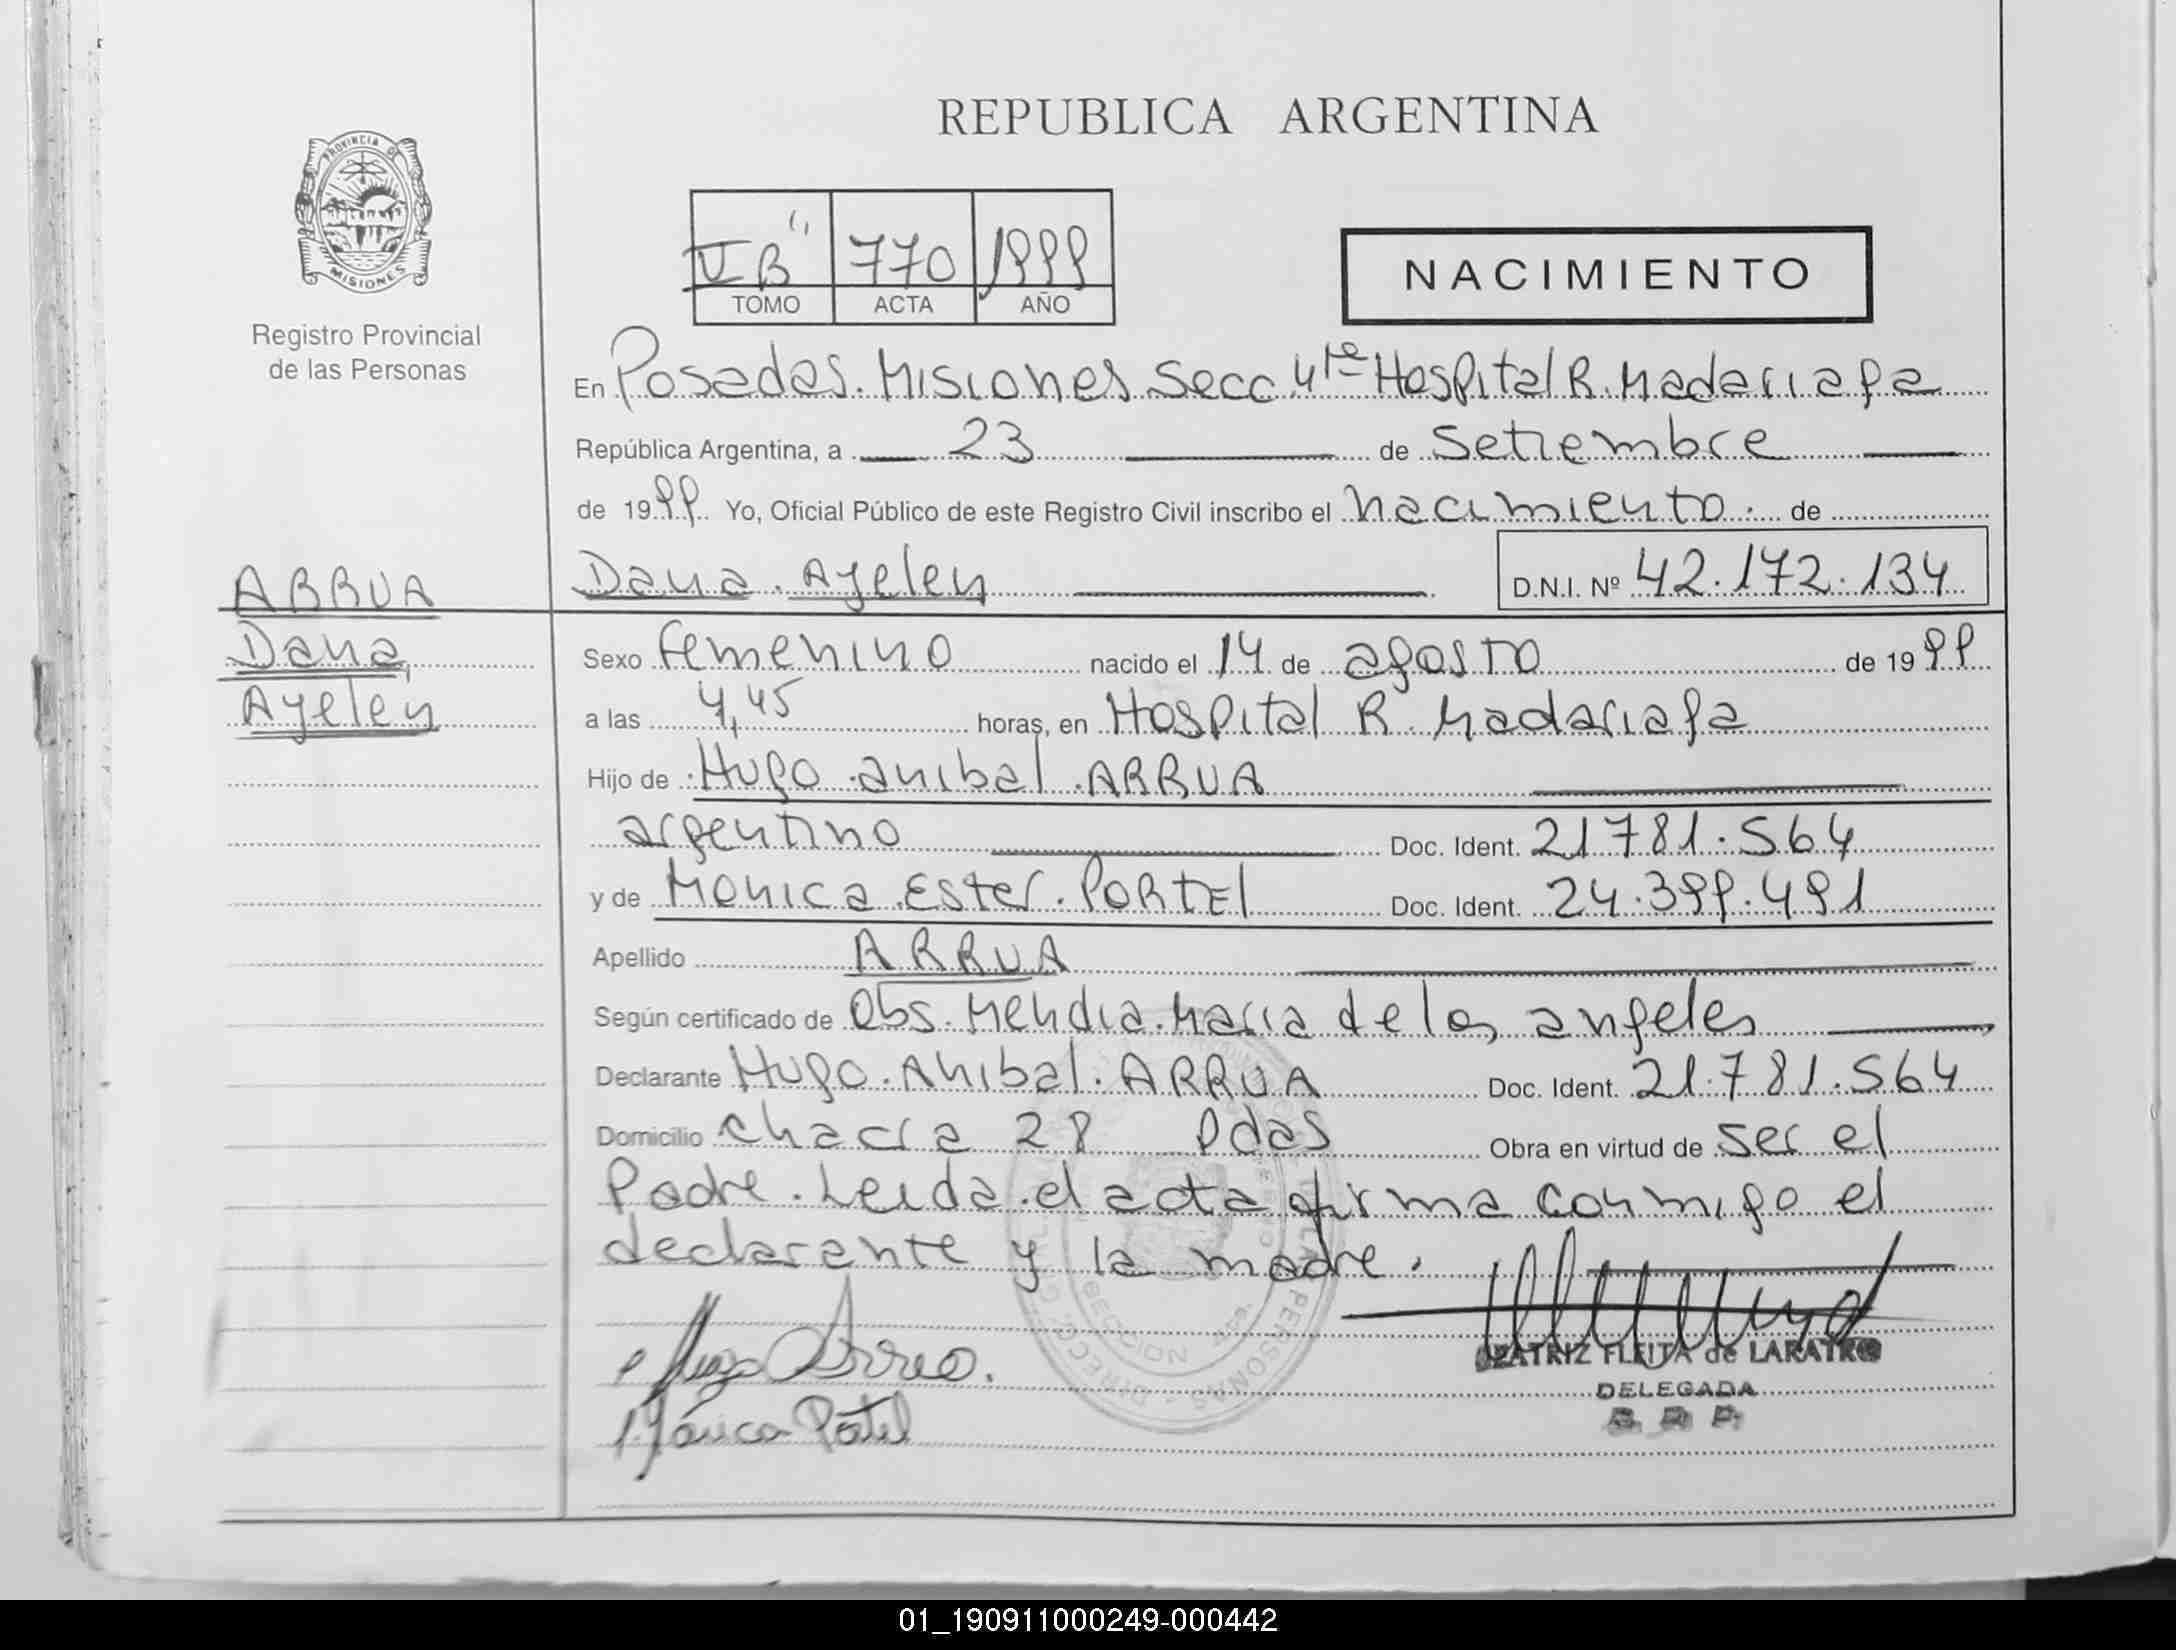 REPUBLICA ARGENTINA
PROVINCIA DE
MISIONES
Registro Provincial
de las Personas
V "B" 770 1999
TOMO ACTA AÑO
NACIMIENTO
En Posadas. Misiones Secc. 4ta Hospital R. Madariaga
República Argentina, a 23 de Setiembre
de 1999 Yo, Oficial Público de este Registro Civil inscribo el nacimiento. de
ARRUA
Dana
Ayelen
Dana. Ayelen D.N.I. Nº 42.172.134
Sexo femenino nacido el 14 de agosto de 1999
a las 4,45 horas, en Hospital R. Madariaga
Hijo de Hugo anibal ARRUA
argentino Doc. Ident. 21781.564
y de Monica Ester. PORTEl Doc. Ident. 24.399.491
Apellido ARRUA
Según certificado de Obs. Mendia. Maria de los angeles
Declarante Hugo. Anibal. ARRUA Doc. Ident. 21.781.564
Domicilio chacra 28 Pdas Obra en virtud de ser el
Padre. Leida el acta firma conmigo el
declarante y la madre.
Hugo Arrua.
Mónica Portel
BEATRIZ FLEITA de LARATRO
DELEGADA
SECCION
01_190911000249-000442